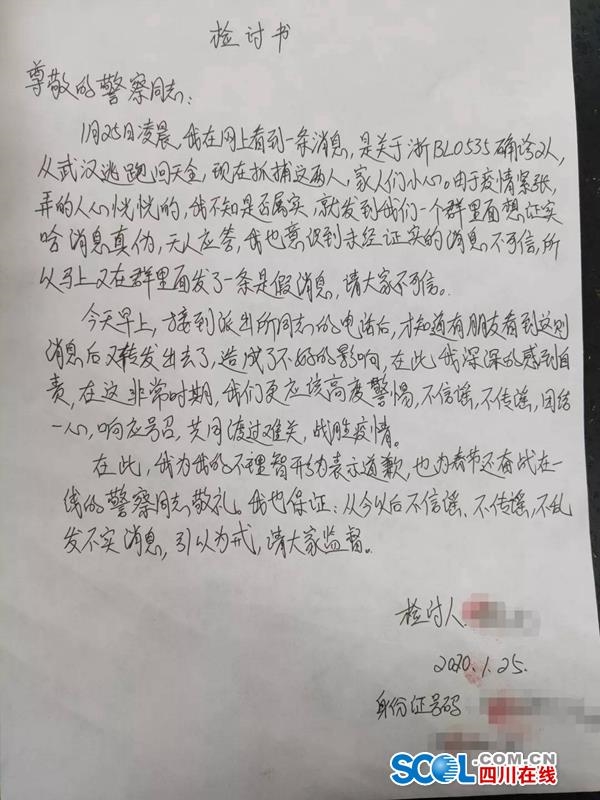 检讨书
尊敬的警察同志:
1月25日凌晨,我在网上看到一条消息,是关于浙BL0535确诊2人,
从武汉逃跑回天全,现在抓捕这两人,家人们小心。由于疫情紧张,
弄的人心恍恍的,我不知是否属实,就发到我们一个群里面想证实
哈消息真伪,无人应答,我也意识到未经证实的消息不可信,所
以马上又在群里面发了一条是假消息,请大家不可信。
今天早上,接到派出所同志的电话后,才知道有朋友看到这则
消息后又转发出去了,造成了不好的影响,在此我深深的感到自
责,在这非常时期,我们更应该高度警惕,不信谣,不传谣,团结
一心,响应号召,共同渡过难关,战胜疫情。
在此,我为我的不理智行为表示道歉,也为春节还奋战在一
线的警察同志敬礼。我也保证:从今以后不信谣、不传谣,不乱
发不实消息,引以为戒,请大家监督。
检讨人:
2020.1.25.
身份证号码
SCOL.COM.CN
四川在线